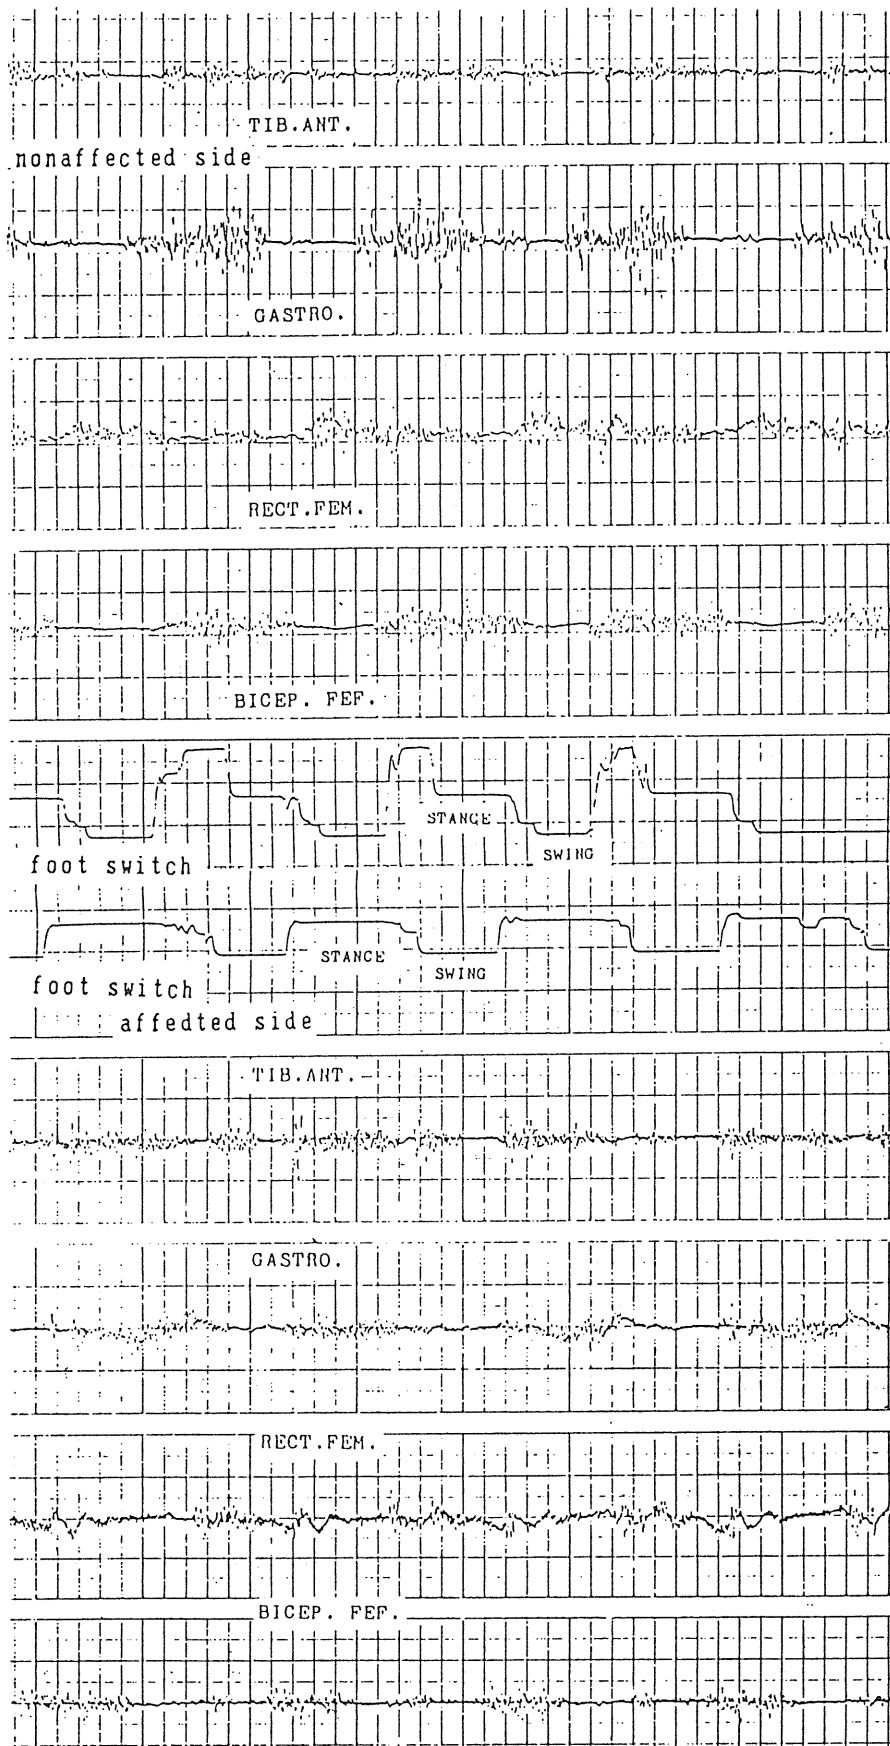 TIB.ANT.
nonaffected side
GASTRO.
RECT.FEM.
BICEP. FEF.
STANCE
SWING
foot switch
STANCE
SWING
foot switch
affedted side
TIB.ANT.
GASTRO.
RECT.FEM.
BICEP. FEF.